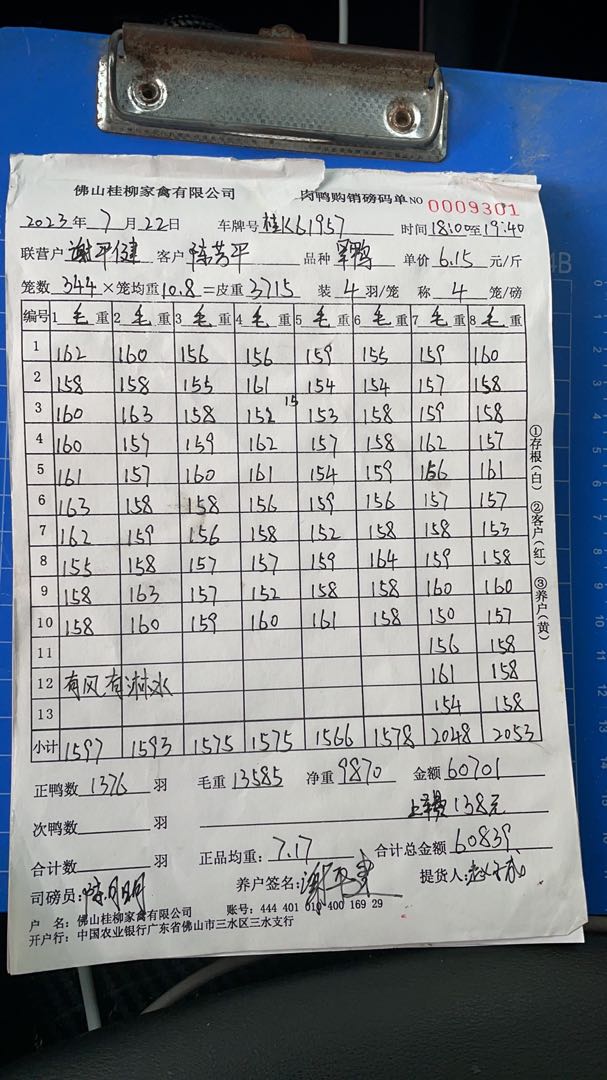 佛山桂柳家禽有限公司 肉鸭购销磅码单 NO 0009301
2023年 7月 22日 车牌号 桂K61957 时间 18:00至19:40
联营户 谢平健 客户 陈芳平 品种 单价 6.15 元/斤
笼数 344 ×笼均重 10.8 =皮重 3715 装 4 羽/笼 称 4 笼/磅
编号 1 毛 重 2 毛 重 3 毛 重 4 毛 重 5 毛 重 6 毛 重 7 毛 重 8 毛 重
1 162 160 156 156 159 155 159 160
2 158 158 155 161 154 154 157 158
3 160 163 158 152 15 153 158 159 158
4 160 157 159 162 157 158 162 157
5 161 157 160 161 154 159 156 161
6 163 158 158 156 159 156 157 157
7 162 159 156 158 152 158 158 153
8 155 158 157 157 159 164 159 158
9 158 163 157 152 158 158 160 160
10 158 160 159 160 161 158 150 157
11 156 158
12 有风有淋水 161 158
13 154 158
小计 1597 1593 1575 1575 1566 1578 2048 2053
正鸭数 1376 羽 毛重 13585 净重 9870 金额 60701
138元
次鸭数 羽
合计数 羽 正品均重: 7.17 合计总金额 60839
司磅员: 养户签名: 提货人:
户 名: 佛山桂柳家禽有限公司 账号: 444 401 010 400 169 29
开户行: 中国农业银行广东省佛山市三水区三水支行
①存根(白) ②客户(红) ③养户(黄)